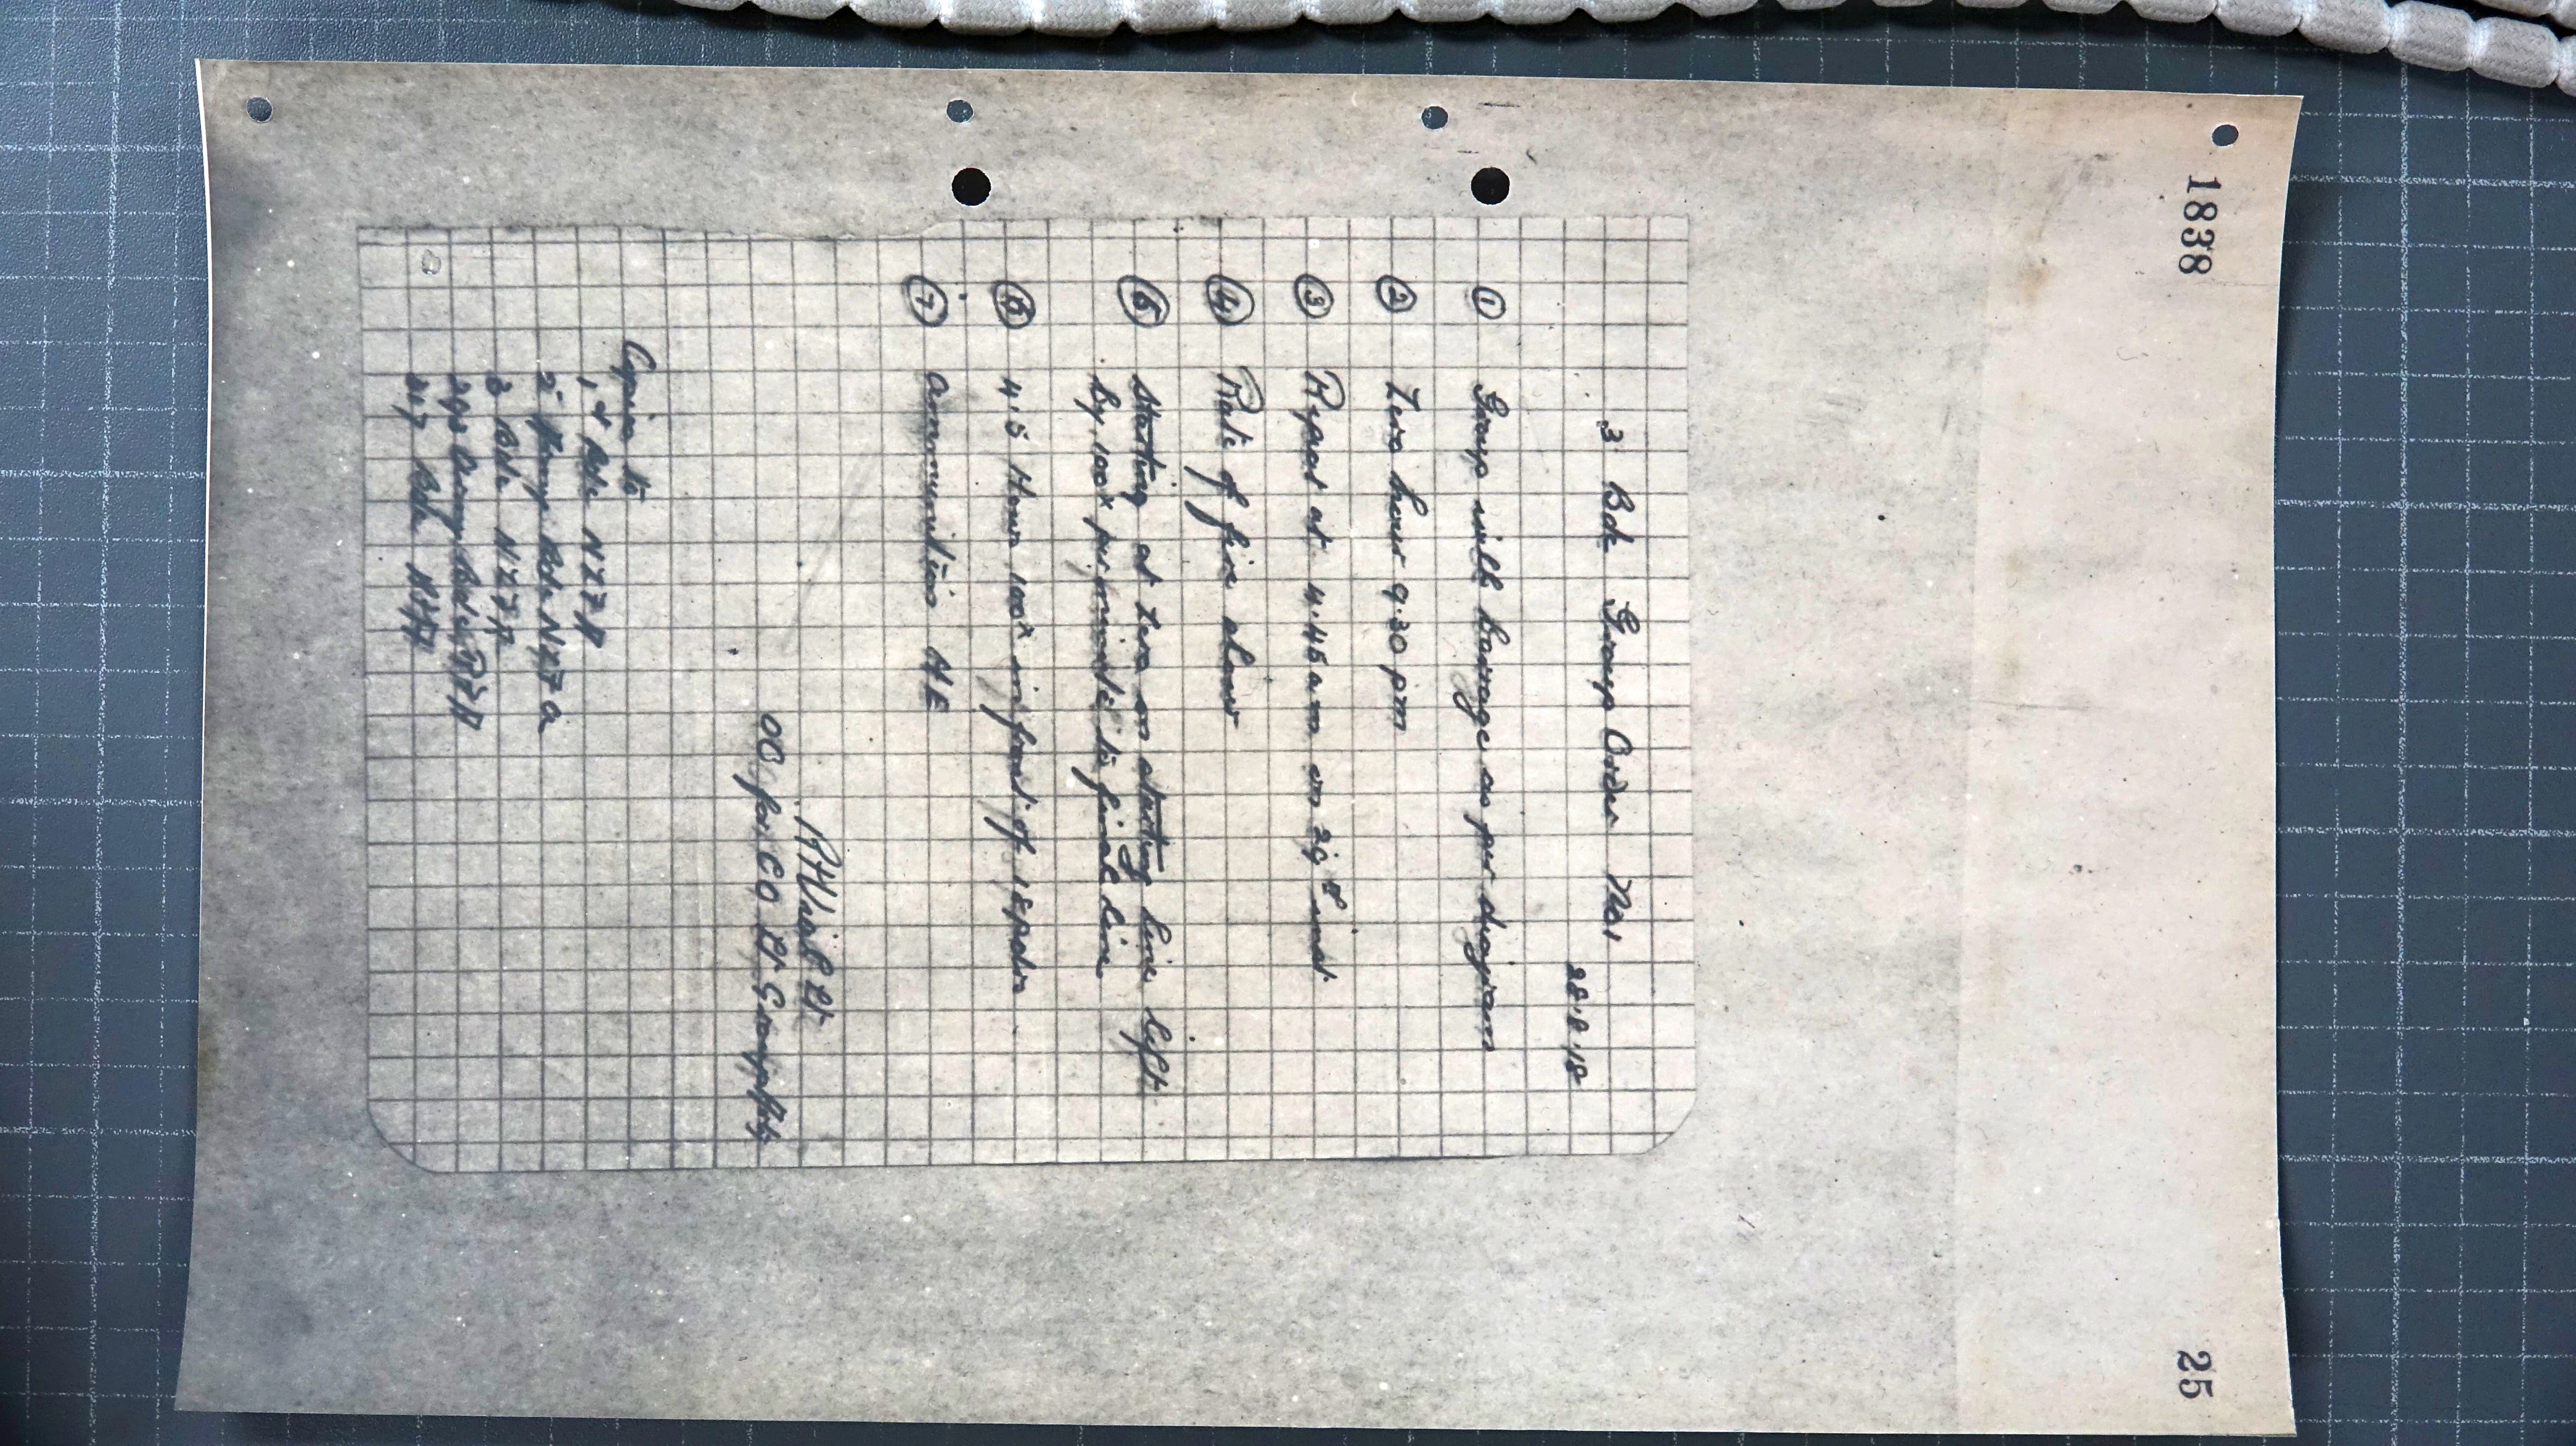 1838
25
3 Bde Group Order No 1
28.8.18
① Group will barrage as per diagram
② Zero hour 9.30 pm
③ Repeat at 4.45 am on 29th inst
④ Rate of fire slow
⑤ Starting at Zero on starting line lift
by 100x per minute to final line
⑥ 4.5 Hows 100x in front of 18 pdrs
⑦ Ammunition HE
Lt
OO for CO Lt Group
Copies to
1st Bde NZFA
2nd Army Bde NZFA
3 Bde NZFA
290 Army Bde RFA
317 Bde RFA